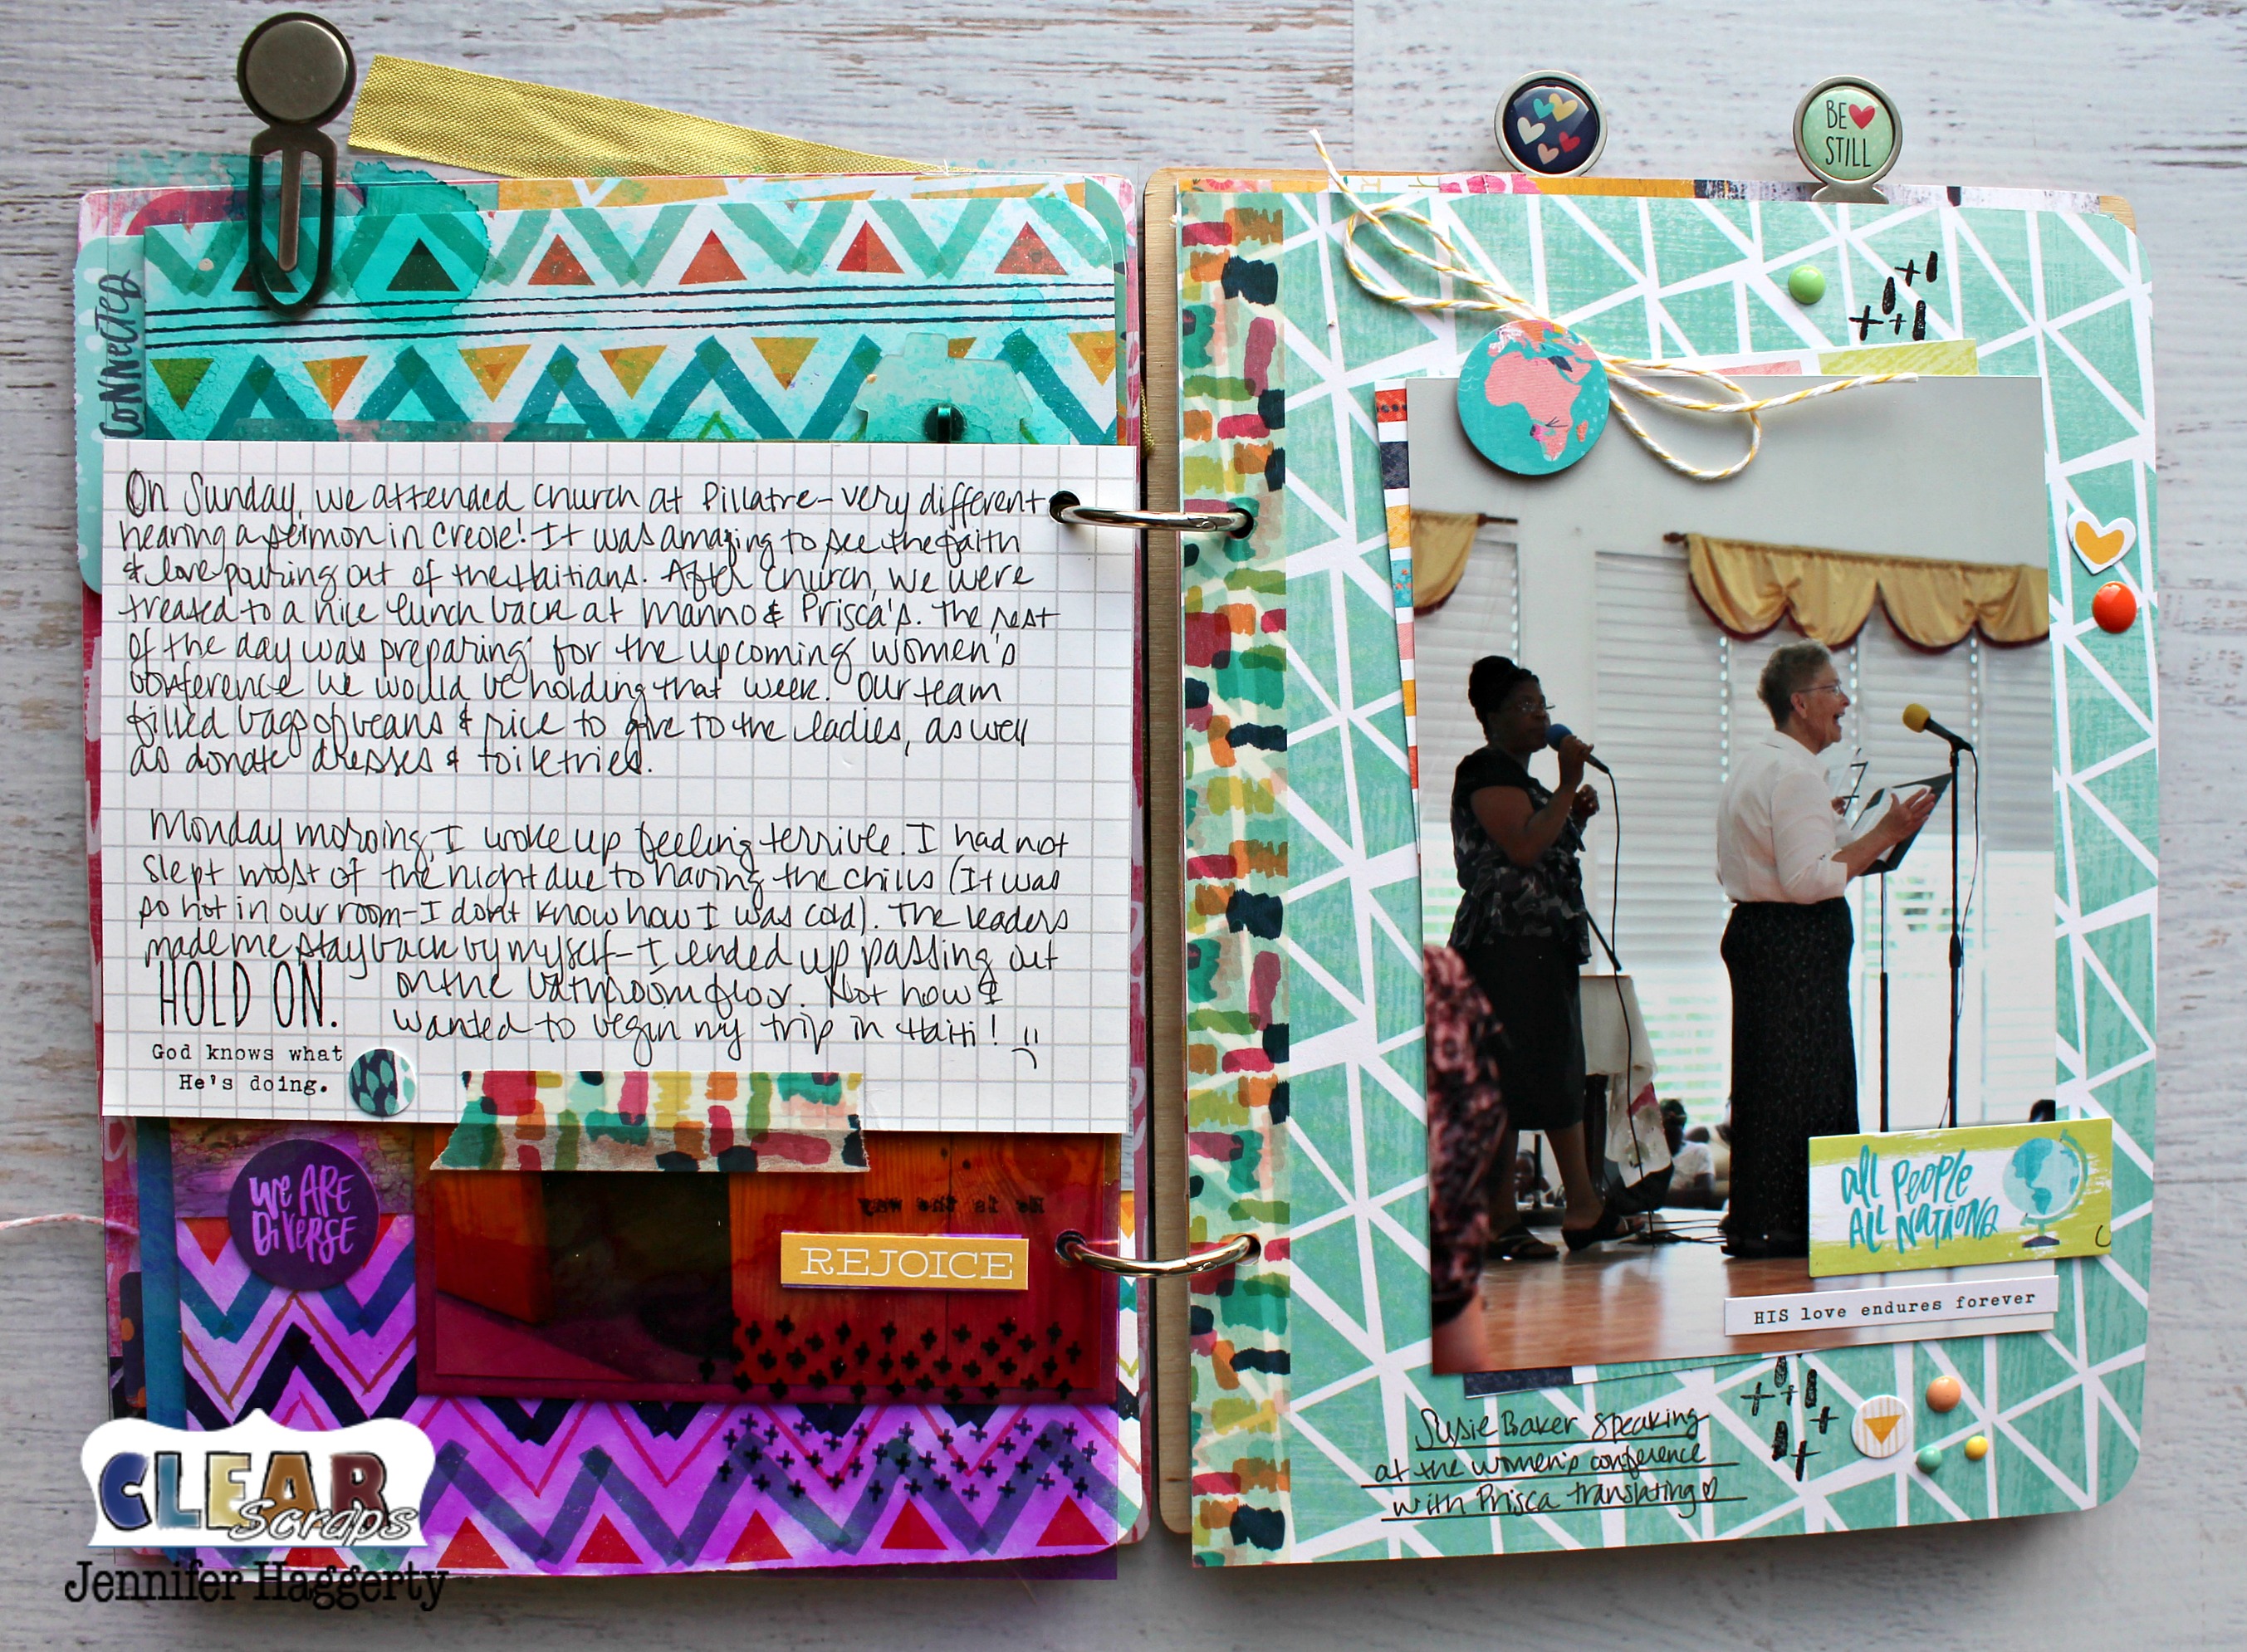 BE
STILL
CONNECTED
On Sunday, we attended church at Pillatre - very different
hearing a sermon in Creole! It was amazing to see the faith
& love pouring out of the Haitians. After church, we were
treated to a nice lunch back at Manno & Prisca's. The rest
of the day was preparing for the upcoming women's
conference we would be holding that week. Our team
filled bags of beans & rice to give to the ladies, as well
as donate dresses & toiletries.
Monday morning, I woke up feeling terrible. I had not
slept most of the night due to having the chills (It was
so hot in our room - I don't know how I was cold). The leaders
made me stay back by myself - I ended up passing out
on the bathroom floor. Not how I
wanted to begin my trip in Haiti!
HOLD ON.
God knows what
He's doing.
WE ARE
DIVERSE
He is the way
REJOICE
all PEOPLE
ALL NATIONS
HIS love endures forever
Susie Baker speaking
at the women's conference
with Prisca translating
CLEAR
Scraps
Jennifer Haggerty